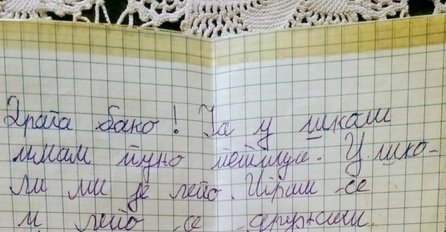 Драга бако! Ја у школи
имам пуно петица. У шко-
ли ми је лепо. Играм се
и лепо се дружим.